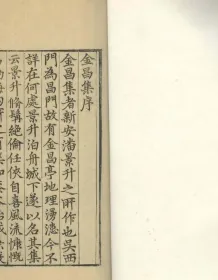 金昌集序
金昌集者新安潘景升之所作也吳西
門為昌門故有金昌亭地理湯湯今不
詳在何處景升泊舟城下遂以名其集
云景升脩髯絕倫任俠自喜風流慷慨